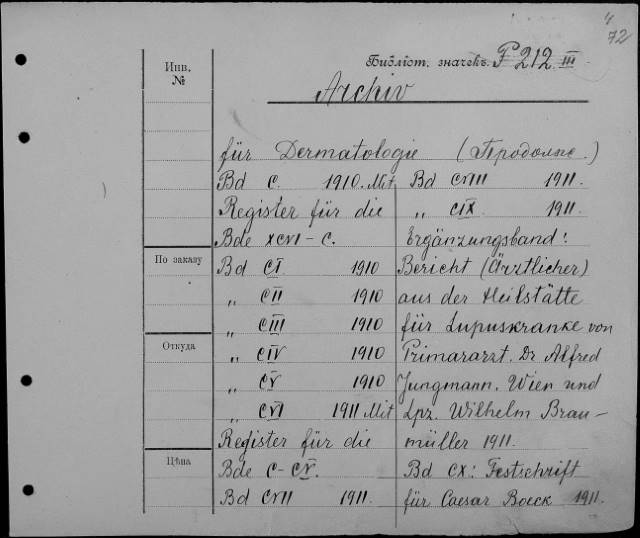 4
72
Инв.
№
Библіот. значекъ P 212 III
Archiv
für Dermatologie (Продолже.)
Bd C. 1910. Mit
Register für die
Bde XCVI – C.
Bd CI 1910
„ CII 1910
„ CIII 1910
„ CIV 1910
„ CV 1910
„ CVI 1911 Mit
Register für die
Bde C – CV.
Bd CVII 1911.
Bd CVIII 1911.
„ CIX 1911.
Ergänzungsband:
Bericht (Ärztlicher)
aus der Heilstätte
für Lupuskranke von
Primararzt. Dr Alfred
Jungmann. Wien und
Lpz. Wilhelm Brau–
müller 1911.
Bd CX: Festschrift
für Caesar Boeck 1911.
По заказу
Откуда
Цѣна